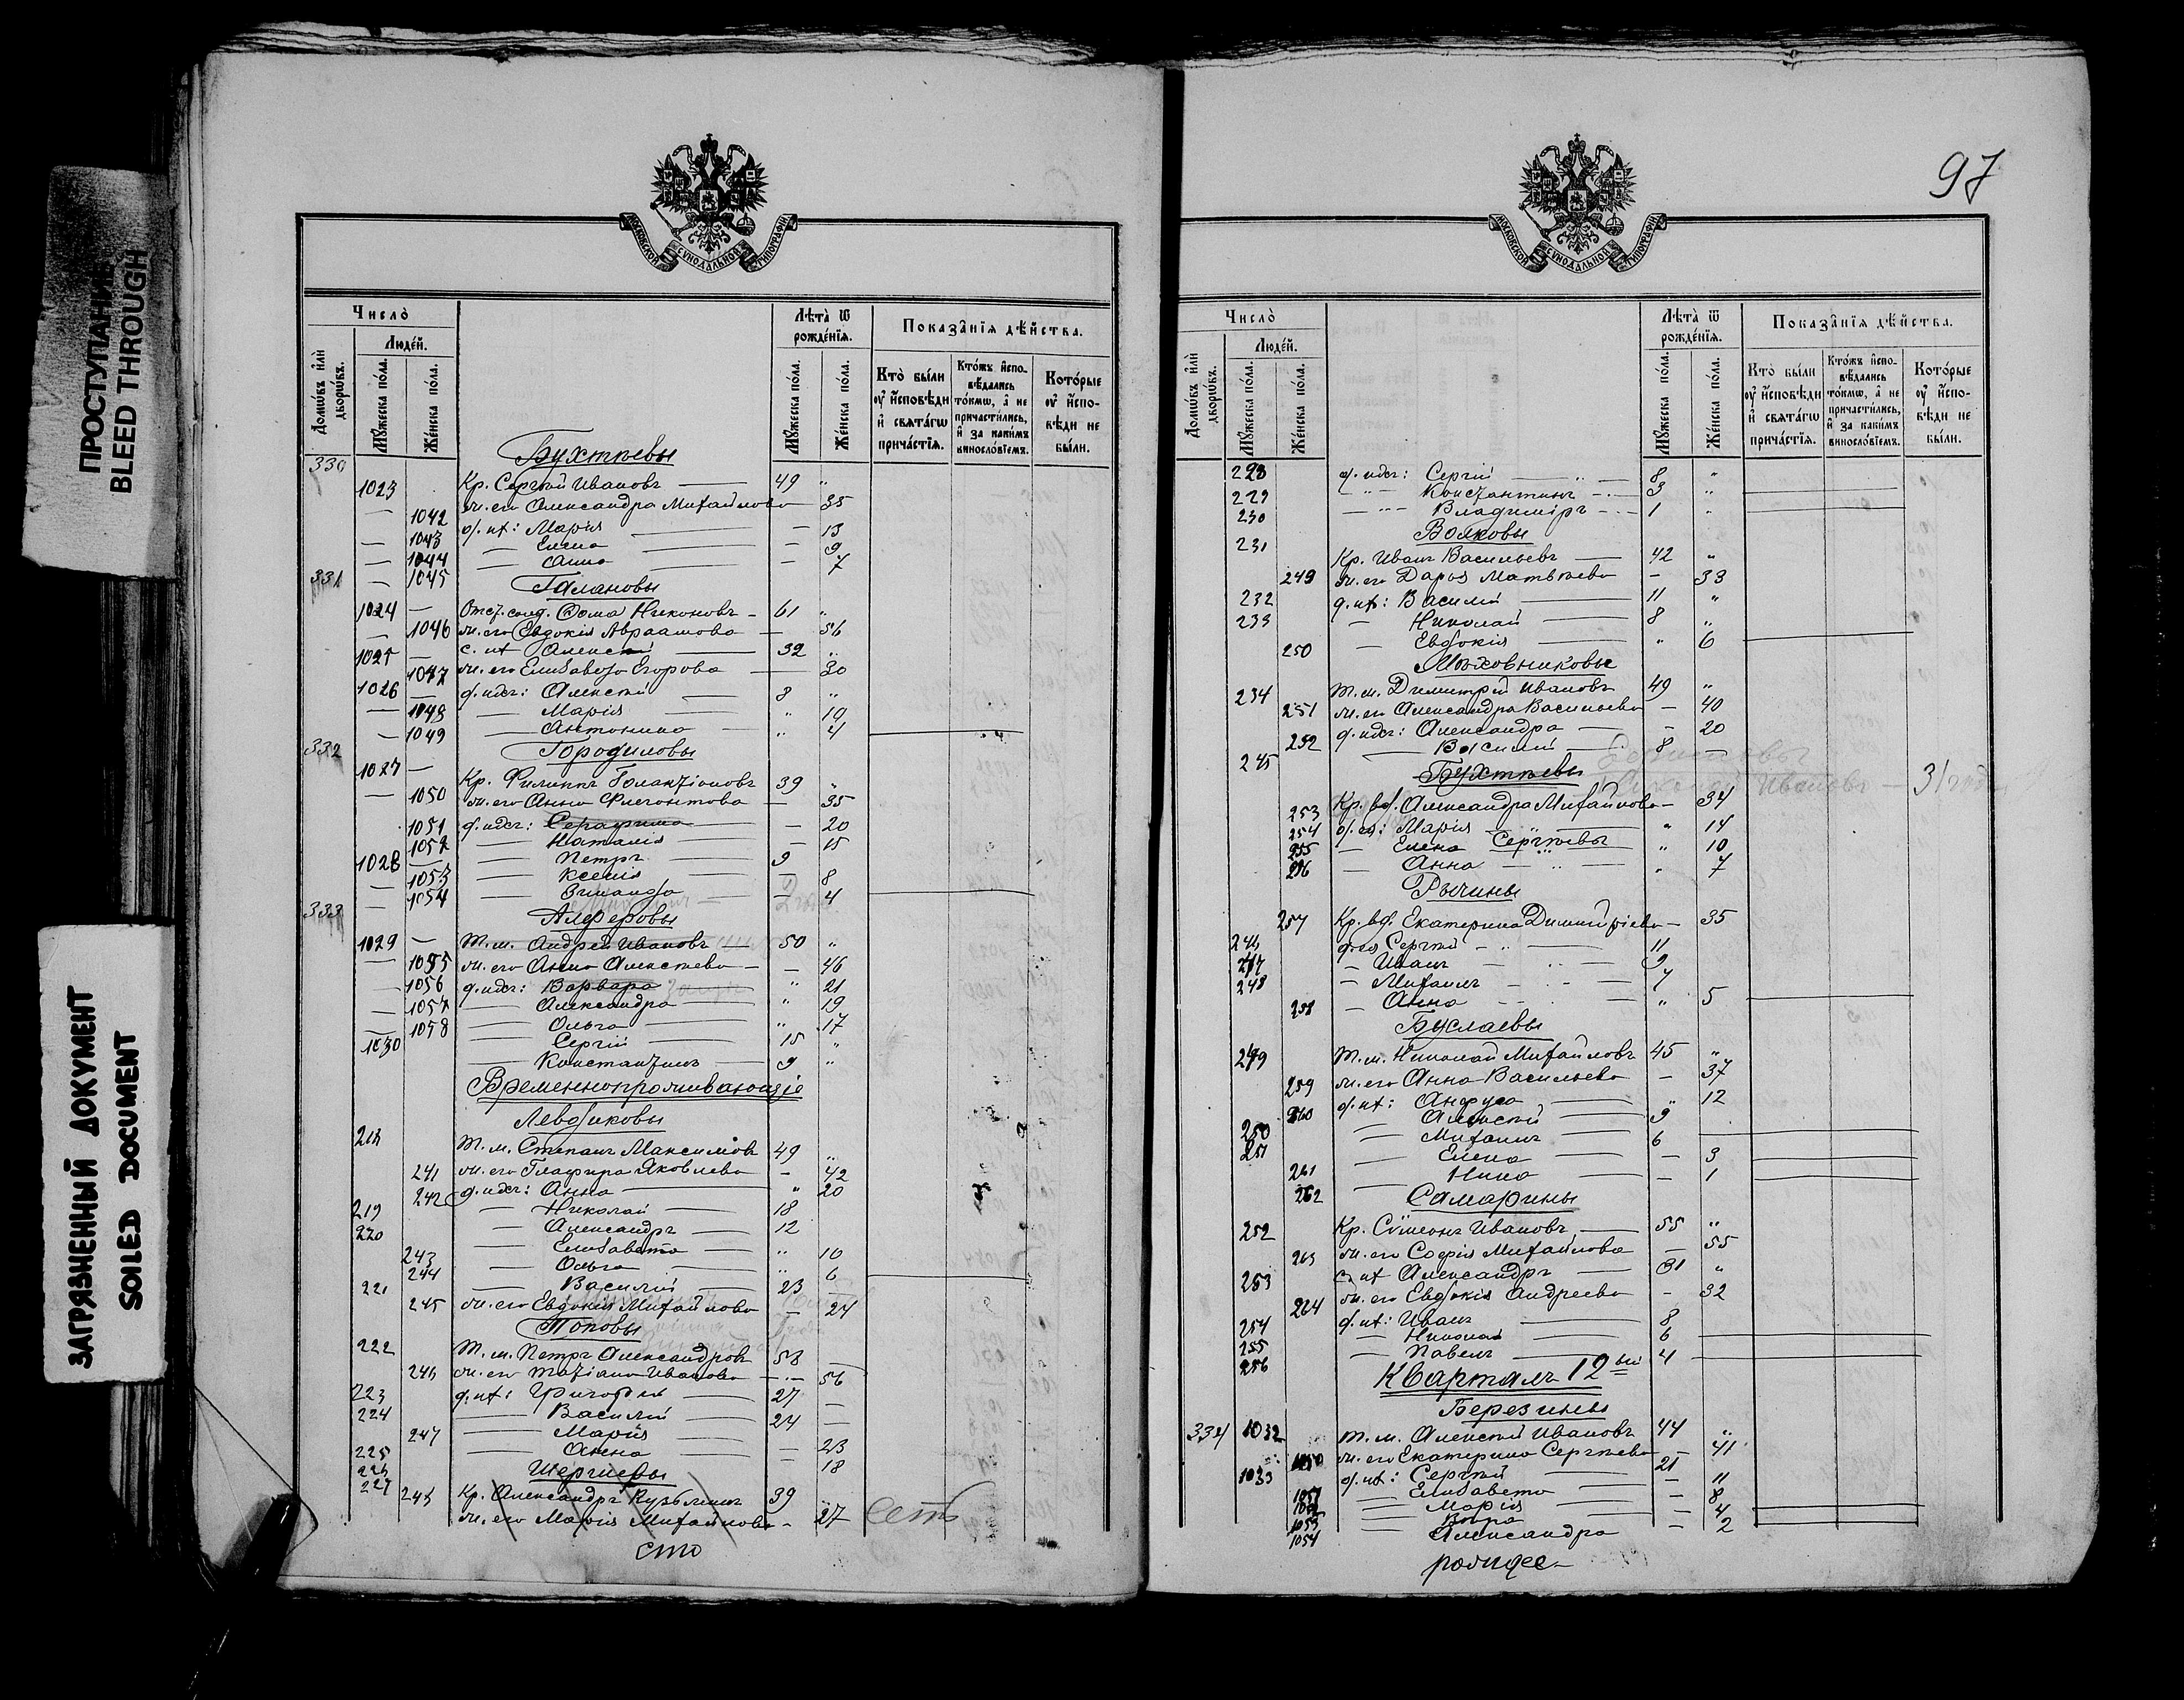 ПРОСТУПАНИЕ
BLEED THROUGH
ЗАГРЯЗНЕННЫЙ ДОКУМЕНТ
SOILED DOCUMENT
МОСКОВСКОЙ СУНОДАЛЬНОЙ ТИПОГРАФІИ
Число̀
Людей.
Домѡвъ и҆лѝ дворѡвъ.
Мꙋжеска по́ла.
Же́нска по́ла.
Лѣта̀ ѿ рожде́нїѧ.
Мꙋжеска по́ла.
Же́нска по́ла.
Показа̂нїѧ дѣ́йства.
Кто̀ бы́ли ᲂу҆ и҆́сповѣди и҆ свѧта́гѡ прича́стїѧ.
Кто́жъ и҆спо-вѣ́дались то́кмѡ, а҆ не причасти́лись, и҆ за каки́мъ винослѡ́вїемъ.
Кото́рые ᲂу҆ и҆́спо-вѣди не бы́ли.
Бухтѣевы
330
1023 Кр. Сергѣй Ивановъ — 49 "
1042 ж. его Александра Михайлова — 35
1043 д. их: Марія — 13
1044 — Елена — 9
1045 — Анна — 7
331 Галановы
1024 — Отст. солд. Ѳома Никоновъ — 61 "
1046 ж. его Евдокія Авраамова — 56
1025 — с. их Алексѣй — 32 "
1047 ж. его Елисавета Егорова — 30
1026 — д. идсг: Алексѣй — 8 "
1048 — Марія — " 10
1049 — Антонина — " 4
332 Городиловы
1027 — Кр. Филиппъ Галактіоновъ 39 "
1050 ж. его Анна Флегонтова — 35
1051 д. идсг: Серафима — 20
1052 — Наталія — 15
1028 — Петръ — 9
1053 — Ксенія — 8
1054 — Зинаида — 4
333 Алферовы
1029 — Т. м. Андрей Ивановъ — 50 "
1055 ж. его Анна Алексѣева — 46
1056 д. идсг: Варвара — " 21
1057 — Александра — " 19
1058 — Ольга — " 17
1030 — Сергій — 15 "
— Константинъ — 9 "
Временнопроживающіе
Левдиковы
218 Т. м. Степанъ Максимовъ 49 "
241 ж. его Глафира Яковлева — 42
242 д. идсг: Анна — " 20
219 — Николай — 18
220 — Александръ — 12
243 — Елисавета — " 10
244 — Ольга — " 6
221 — Василій — 23 —
245 ж. его Евдокія Михайлова — 24
Поповы
222 Т. м. Петръ Александровъ 58 —
246 ж. его Татіана Иванова — 56
223 д. их: Григорій — 27 —
224 — Василій — 24 —
247 — Марія — 23
225 — Анна — 18
226 Шергиевы
227 Кр. Александръ Кузьминъ 39 "
248 ж. его Марія Михайлова — 27 есть
сто
97
МОСКОВСКОЙ СУНОДАЛЬНОЙ ТИПОГРАФІИ
Число̀
Людей.
Домѡвъ и҆лѝ дворѡвъ.
Мꙋжеска по́ла.
Же́нска по́ла.
Лѣта̀ ѿ рожде́нїѧ.
Мꙋжеска по́ла.
Же́нска по́ла.
Показа̂нїѧ дѣ́йства.
Кто̀ бы́ли ᲂу҆ и҆́сповѣди и҆ свѧта́гѡ прича́стїѧ.
Кто́жъ и҆спо-вѣ́дались то́кмѡ, а҆ не причасти́лись, и҆ за каки́мъ винослѡ́вїемъ.
Кото́рые ᲂу҆ и҆́спо-вѣди не бы́ли.
228 д. идсг: Сергій — 8 "
229 — Константинъ — 3 "
230 — Владиміръ — 1 "
Волковы
231 Кр. Иванъ Васильевъ — 42 "
249 ж. его Дарья Матвѣева — 38
232 д. их: Василій — 11 "
233 — Николай — 8 "
250 — Евдокія — " 6
Мѣховниковы
234 Т. м. Димитрій Ивановъ 49 "
251 ж. его Александра Васильева — 40
252 д. идсг: Александра — 20
245 — Василій — 8 —
Бухтѣевы
Ивановъ — 31 годъ
253 Кр. вд. Александра Михайлова — 34
254 д. ея: Марія — " 14
255 — Елена Сергѣевы " 10
256 — Анна — " 7
Рычины
257 Кр. вд. Екатерина Димитріева — 35
246 д. ея Сергѣй — 11
247 — Иванъ — 9
248 — Михаилъ — 7
258 — Анна — " 5
Буслаевы
249 Т. м. Николай Михайловъ 45 "
259 ж. его Анна Васильева — 37
260 д. их: Анфуса — " 12
250 — Алексѣй — 9
251 — Михаилъ — 6
261 — Елена — 3
262 — Нина — 1
Самарины
252 Кр. Сѵмеонъ Ивановъ — 55 "
263 ж. его Софія Михайлова — 55
253 с. их Александръ — 31 "
264 ж. его Евдокія Андреева — 32
254 д. их: Иванъ — 8
255 — Николай — 6
256 — Павелъ — 4
Кварталъ 12ый
Березины
334 1032 Т. м. Алексѣй Ивановъ 44 "
1050 ж. его Екатерина Сергѣева — 41
1033 д. их: Сергѣй — 21 —
1051 — Елисавета — 11
1052 — Марія — 8
1053 — Вѣра — 4
1054 — Александра — 2
рождес-